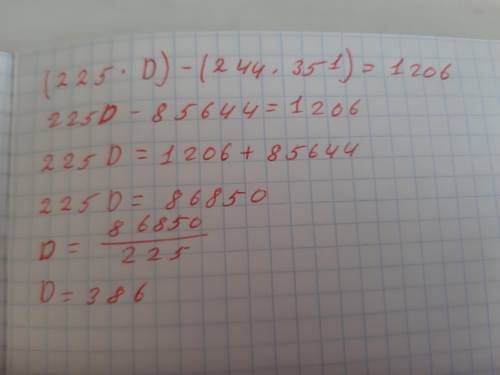 (225 · D) - (244 · 351) = 1206
225D - 85644 = 1206
225D = 1206 + 85644
225D = 86850
D = 86850/225
D = 386